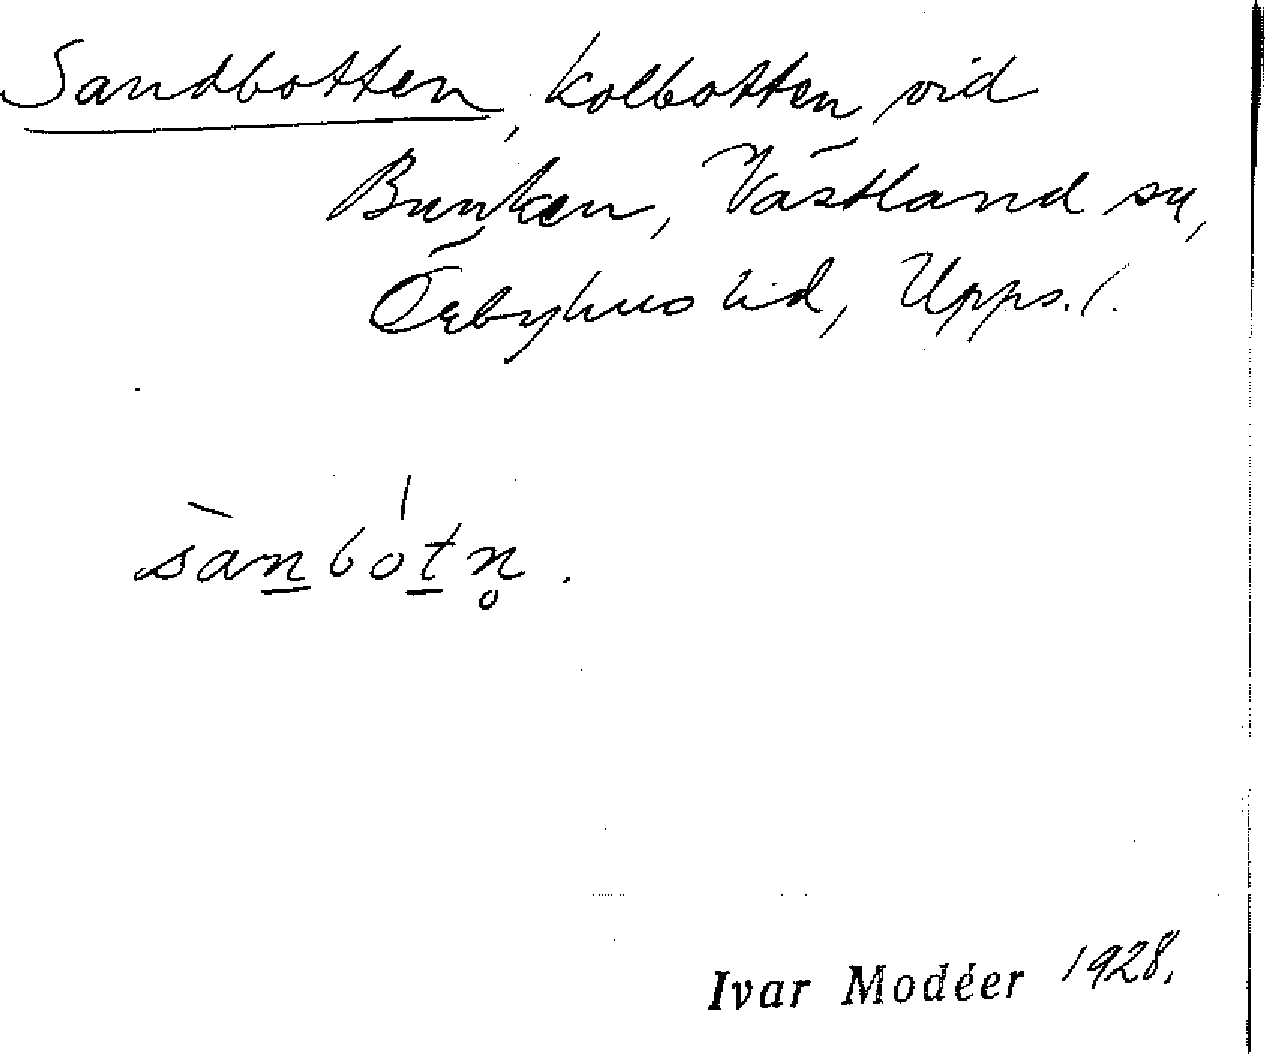 Sandbotten, kolbotten vid
Bunken, Västland sn,
Örbyhus hd, Upps. l.
sànbo̍tn̥.
Ivar Modéer 1928.